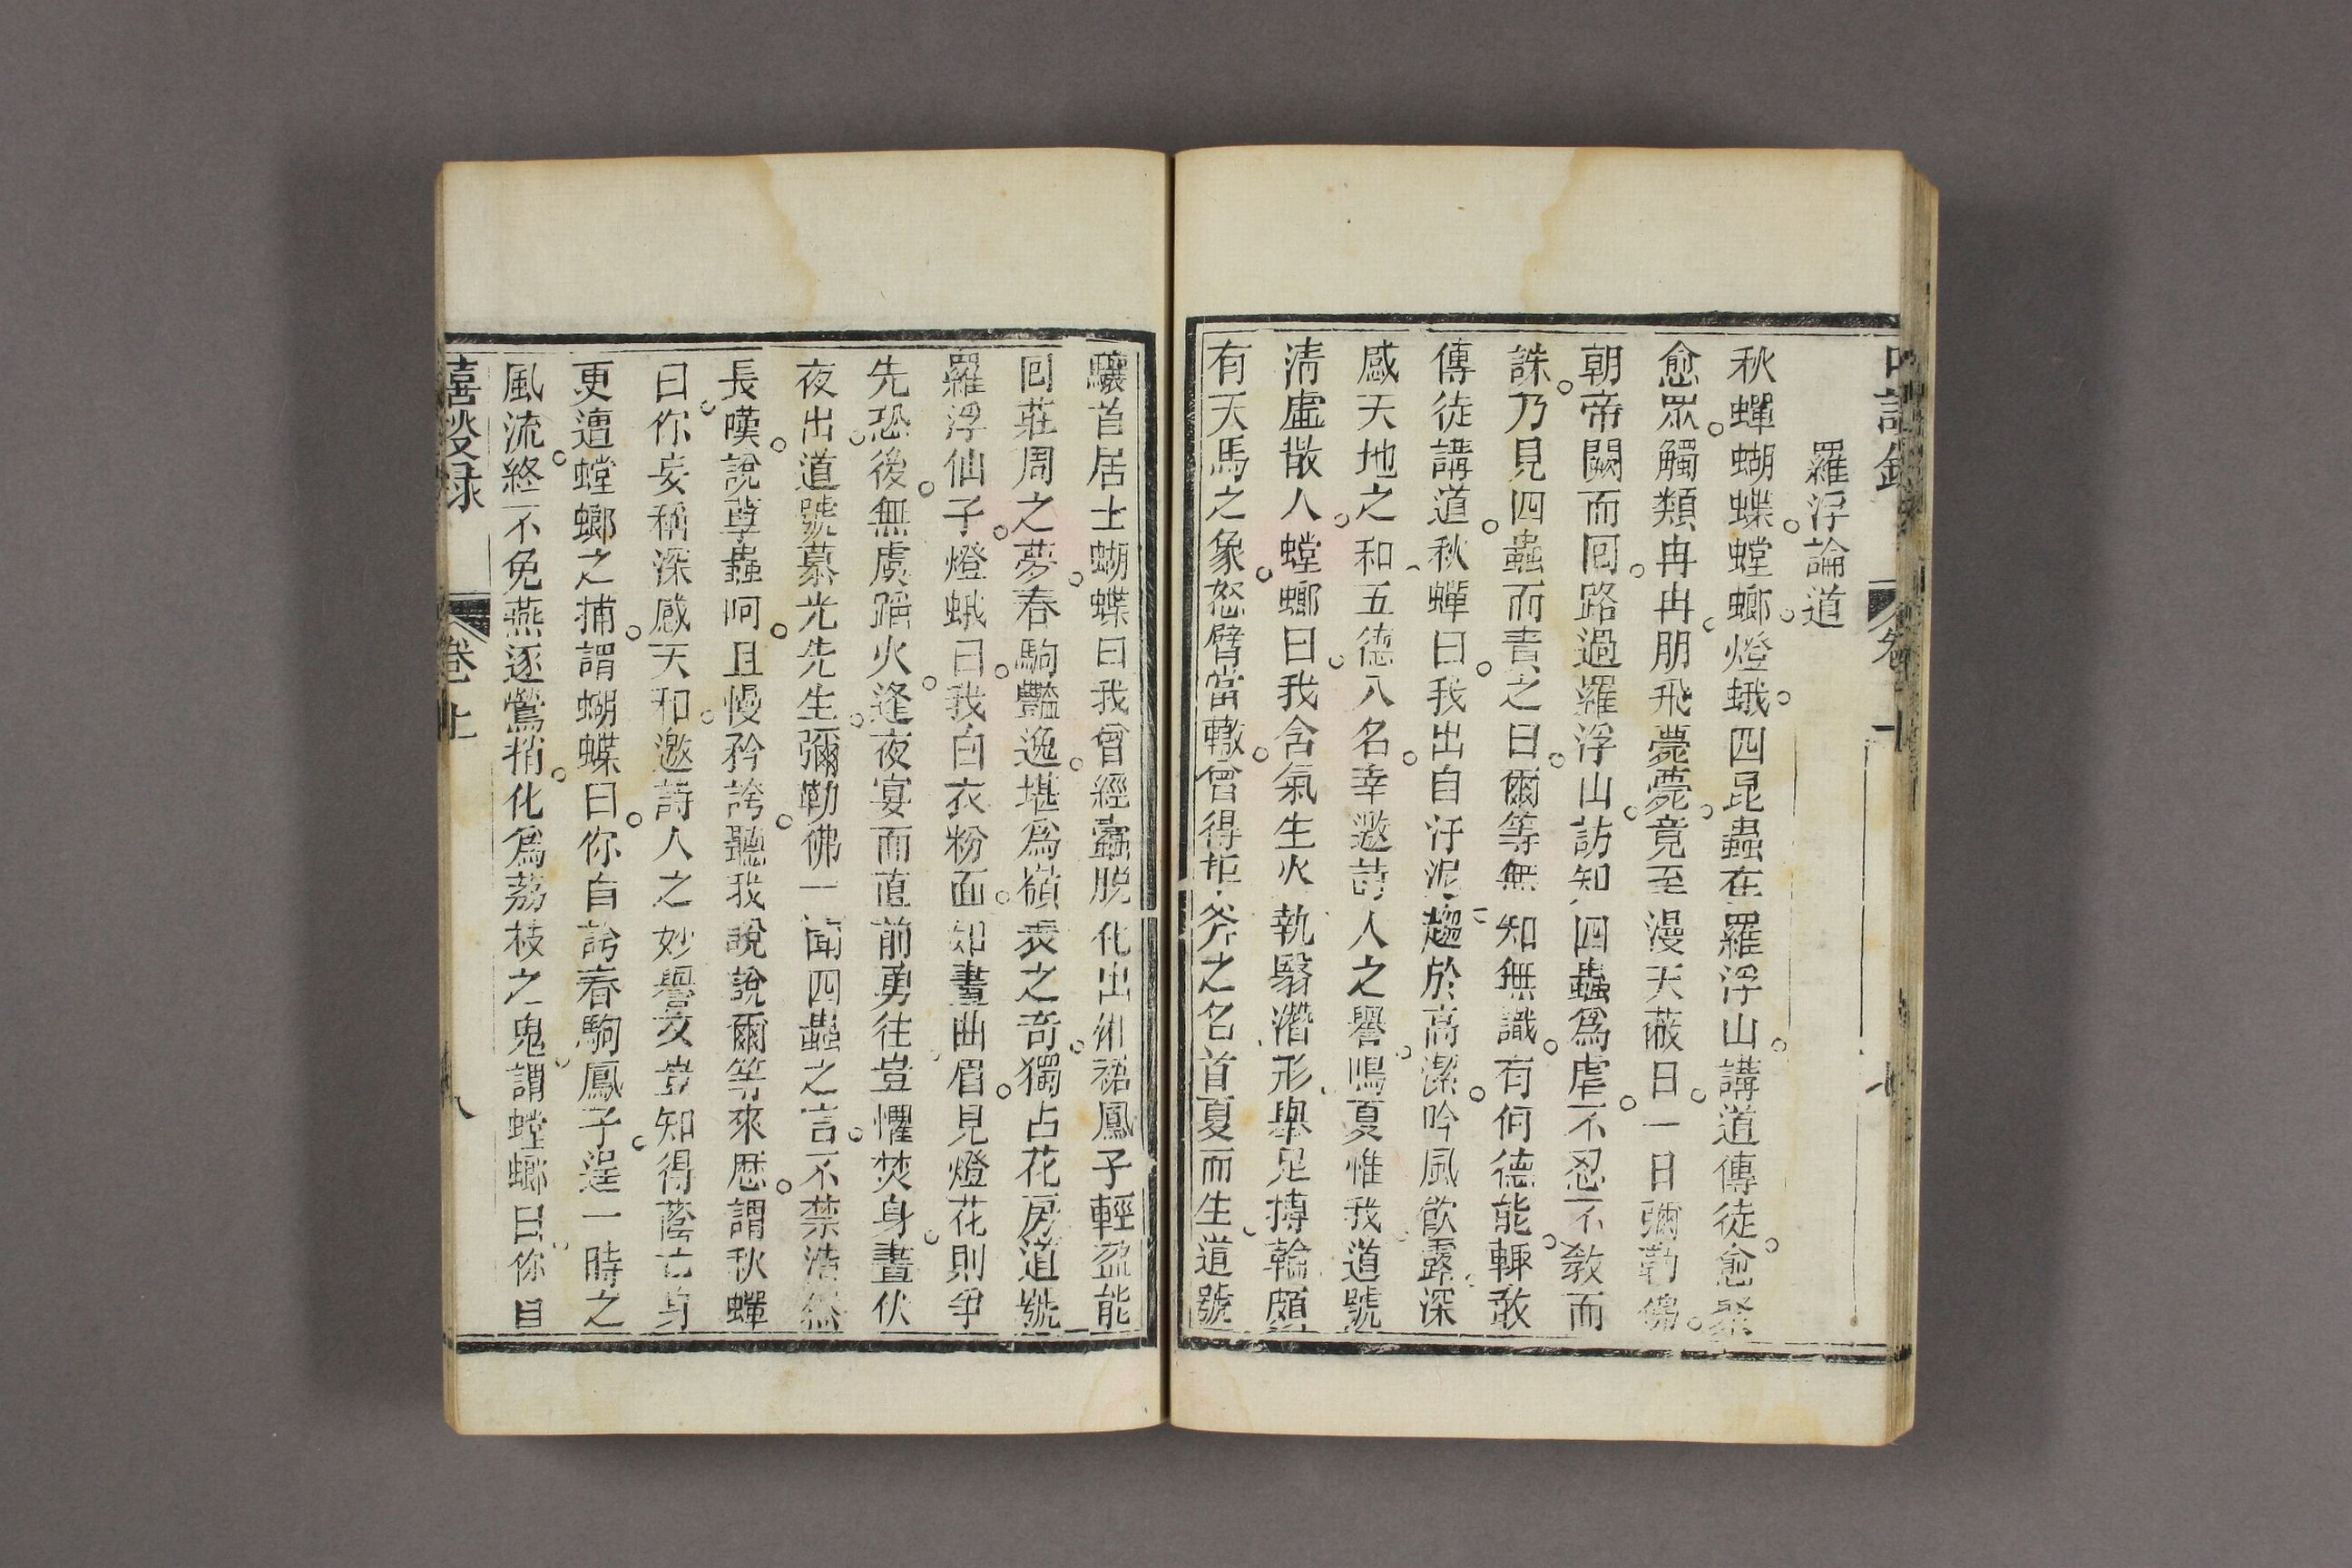 羅浮論道
秋蟬蝴蝶螳螂燈蛾四昆蟲在羅浮山講道傳徒愈聚
愈眾觸類冉冉朋飛薨薨竟至漫天蔽日一日彌勒佛
朝帝闕而回路過羅浮山訪知四蟲爲虐不忍不教而
誅乃見四蟲而責之曰爾等無知無識有何德能輒敢
傳徒講道秋蟬曰我出自汙泥趨於高潔吟風飲露深
感天地之和五德八名幸邀詩人之譽鳴夏惟我道號
淸虛散人螳螂曰我含氣生火執翳潛形舉足摶輪頗
有天馬之象怒臂當轍曾得拒斧之名首夏而生道號
驤首居士蝴蝶曰我曾經蠹脫化出術裙鳳子輕盈能
回莊周之夢春駒豔逸堪爲嶺表之奇獨占花房道號
羅浮仙子燈蛾曰我白衣粉面如畫曲眉見燈花則爭
先恐後無虞蹈火逢夜宴而直前勇往豈懼焚身晝伏
夜出道號慕光先生彌勒佛一聞四蟲之言不禁淒然
長嘆說蠢蟲呵且慢矜誇聽我說說爾等來歷謂秋蟬
曰你妄稱深感天和邀詩人之妙譽豈知得蔭亡身
更遭螳螂之捕謂蝴蝶曰你自誇春駒鳳子逞一時之
風流終不免燕逐鶯捎化爲荔枝之鬼謂螳螂曰你自
卷上
八